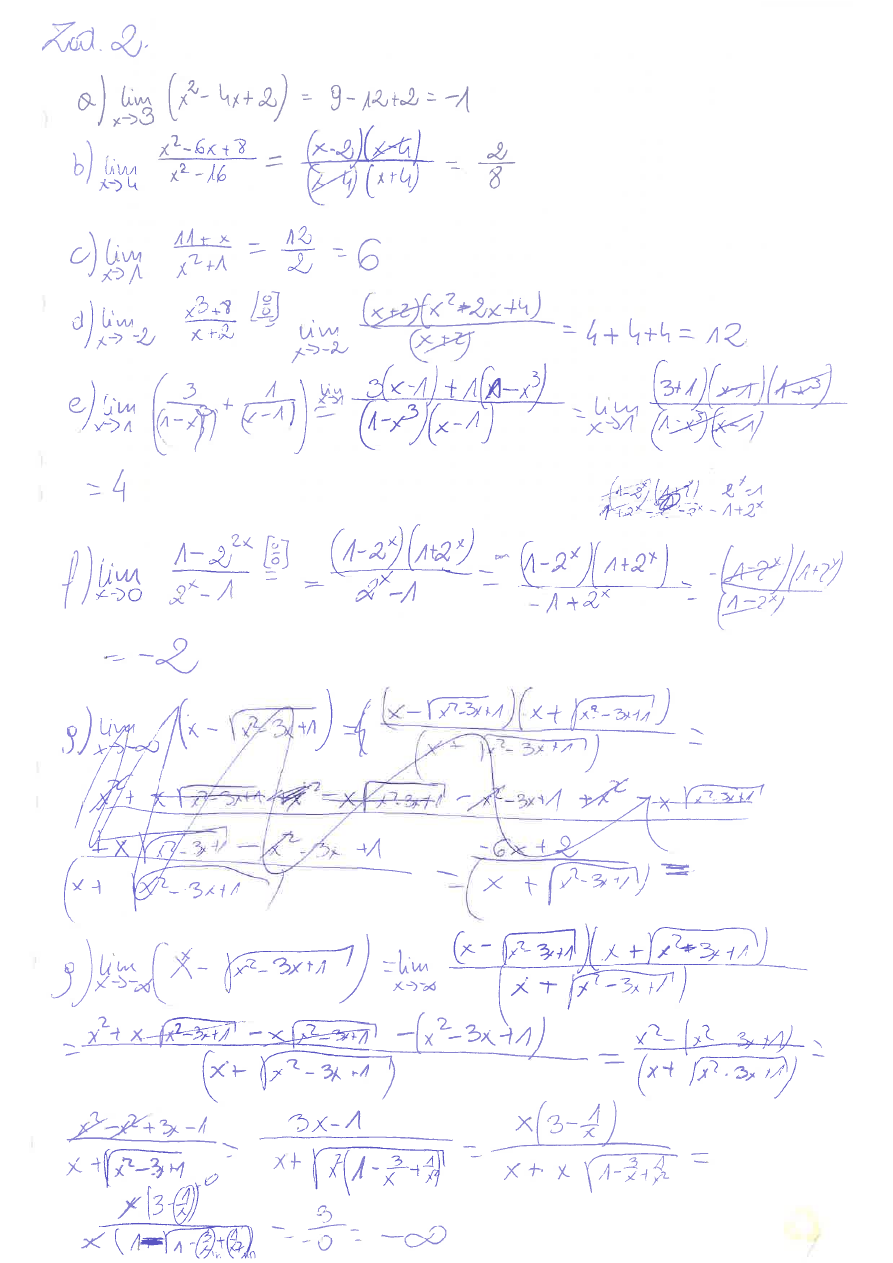 Zad. 2.
a) lim x→3 (x² - 4x + 2) = 9 - 12 + 2 = -1
b) lim x→4 (x² - 6x + 8)/(x² - 16) = ((x-2)(x-4))/((x-4)(x+4)) = 2/8
c) lim x→1 (11 + x)/(x² + 1) = 12/2 = 6
d) lim x→-2 (x³ + 8)/(x + 2) [0/0] = lim x→-2 ((x+2)(x² - 2x + 4))/(x+2) = 4 + 4 + 4 = 12
e) lim x→1 (3/(1-x³) + 1/(x-1)) = lim x→1 (3(x-1) + 1(1-x³))/((1-x³)(x-1)) = lim x→1 ((3+1)(x-1)(1-x³))/((1-x³)(x-1))
= 4
2^x - 1
- 1 + 2^x
f) lim x→0 (1 - 2^(2x))/(2^x - 1) [0/0] = ((1-2^x)(1+2^x))/(2^x - 1) = ((1-2^x)(1+2^x))/(-1+2^x) = (-(1-2^x)(1+2^x))/(1-2^x)
= -2
g) lim x→-∞ (x - √(x² - 3x + 1)) = ((x - √(x²-3x+1))(x + √(x² - 3x + 1)))/(x + √(x² - 3x + 1)) =
(+ x√(x² - 3x + 1) - x² - 3x + 1)/(x + √(x² - 3x + 1)) = (-6x + 2)/(x + √(x² - 3x + 1)) =
g) lim x→-∞ (x - √(x² - 3x + 1)) = lim x→-∞ ((x - √(x² - 3x + 1))(x + √(x² - 3x + 1)))/(x + √(x² - 3x + 1))
= (x² + x√(x² - 3x + 1) - x√(x² - 3x + 1) - (x² - 3x + 1))/(x + √(x² - 3x + 1)) = (x² - (x² - 3x + 1))/(x + √(x² - 3x + 1)) =
(x² - x² + 3x - 1)/(x + √(x² - 3x + 1)) = (3x - 1)/(x + √(x²(1 - 3/x + 1/x²))) = (x(3 - 1/x))/(x + x√(1 - 3/x + 1/x²)) =
(x(3 - 1/x))/(x(1 - √(1 - 3/x + 1/x²))) = 3/-0 = -∞